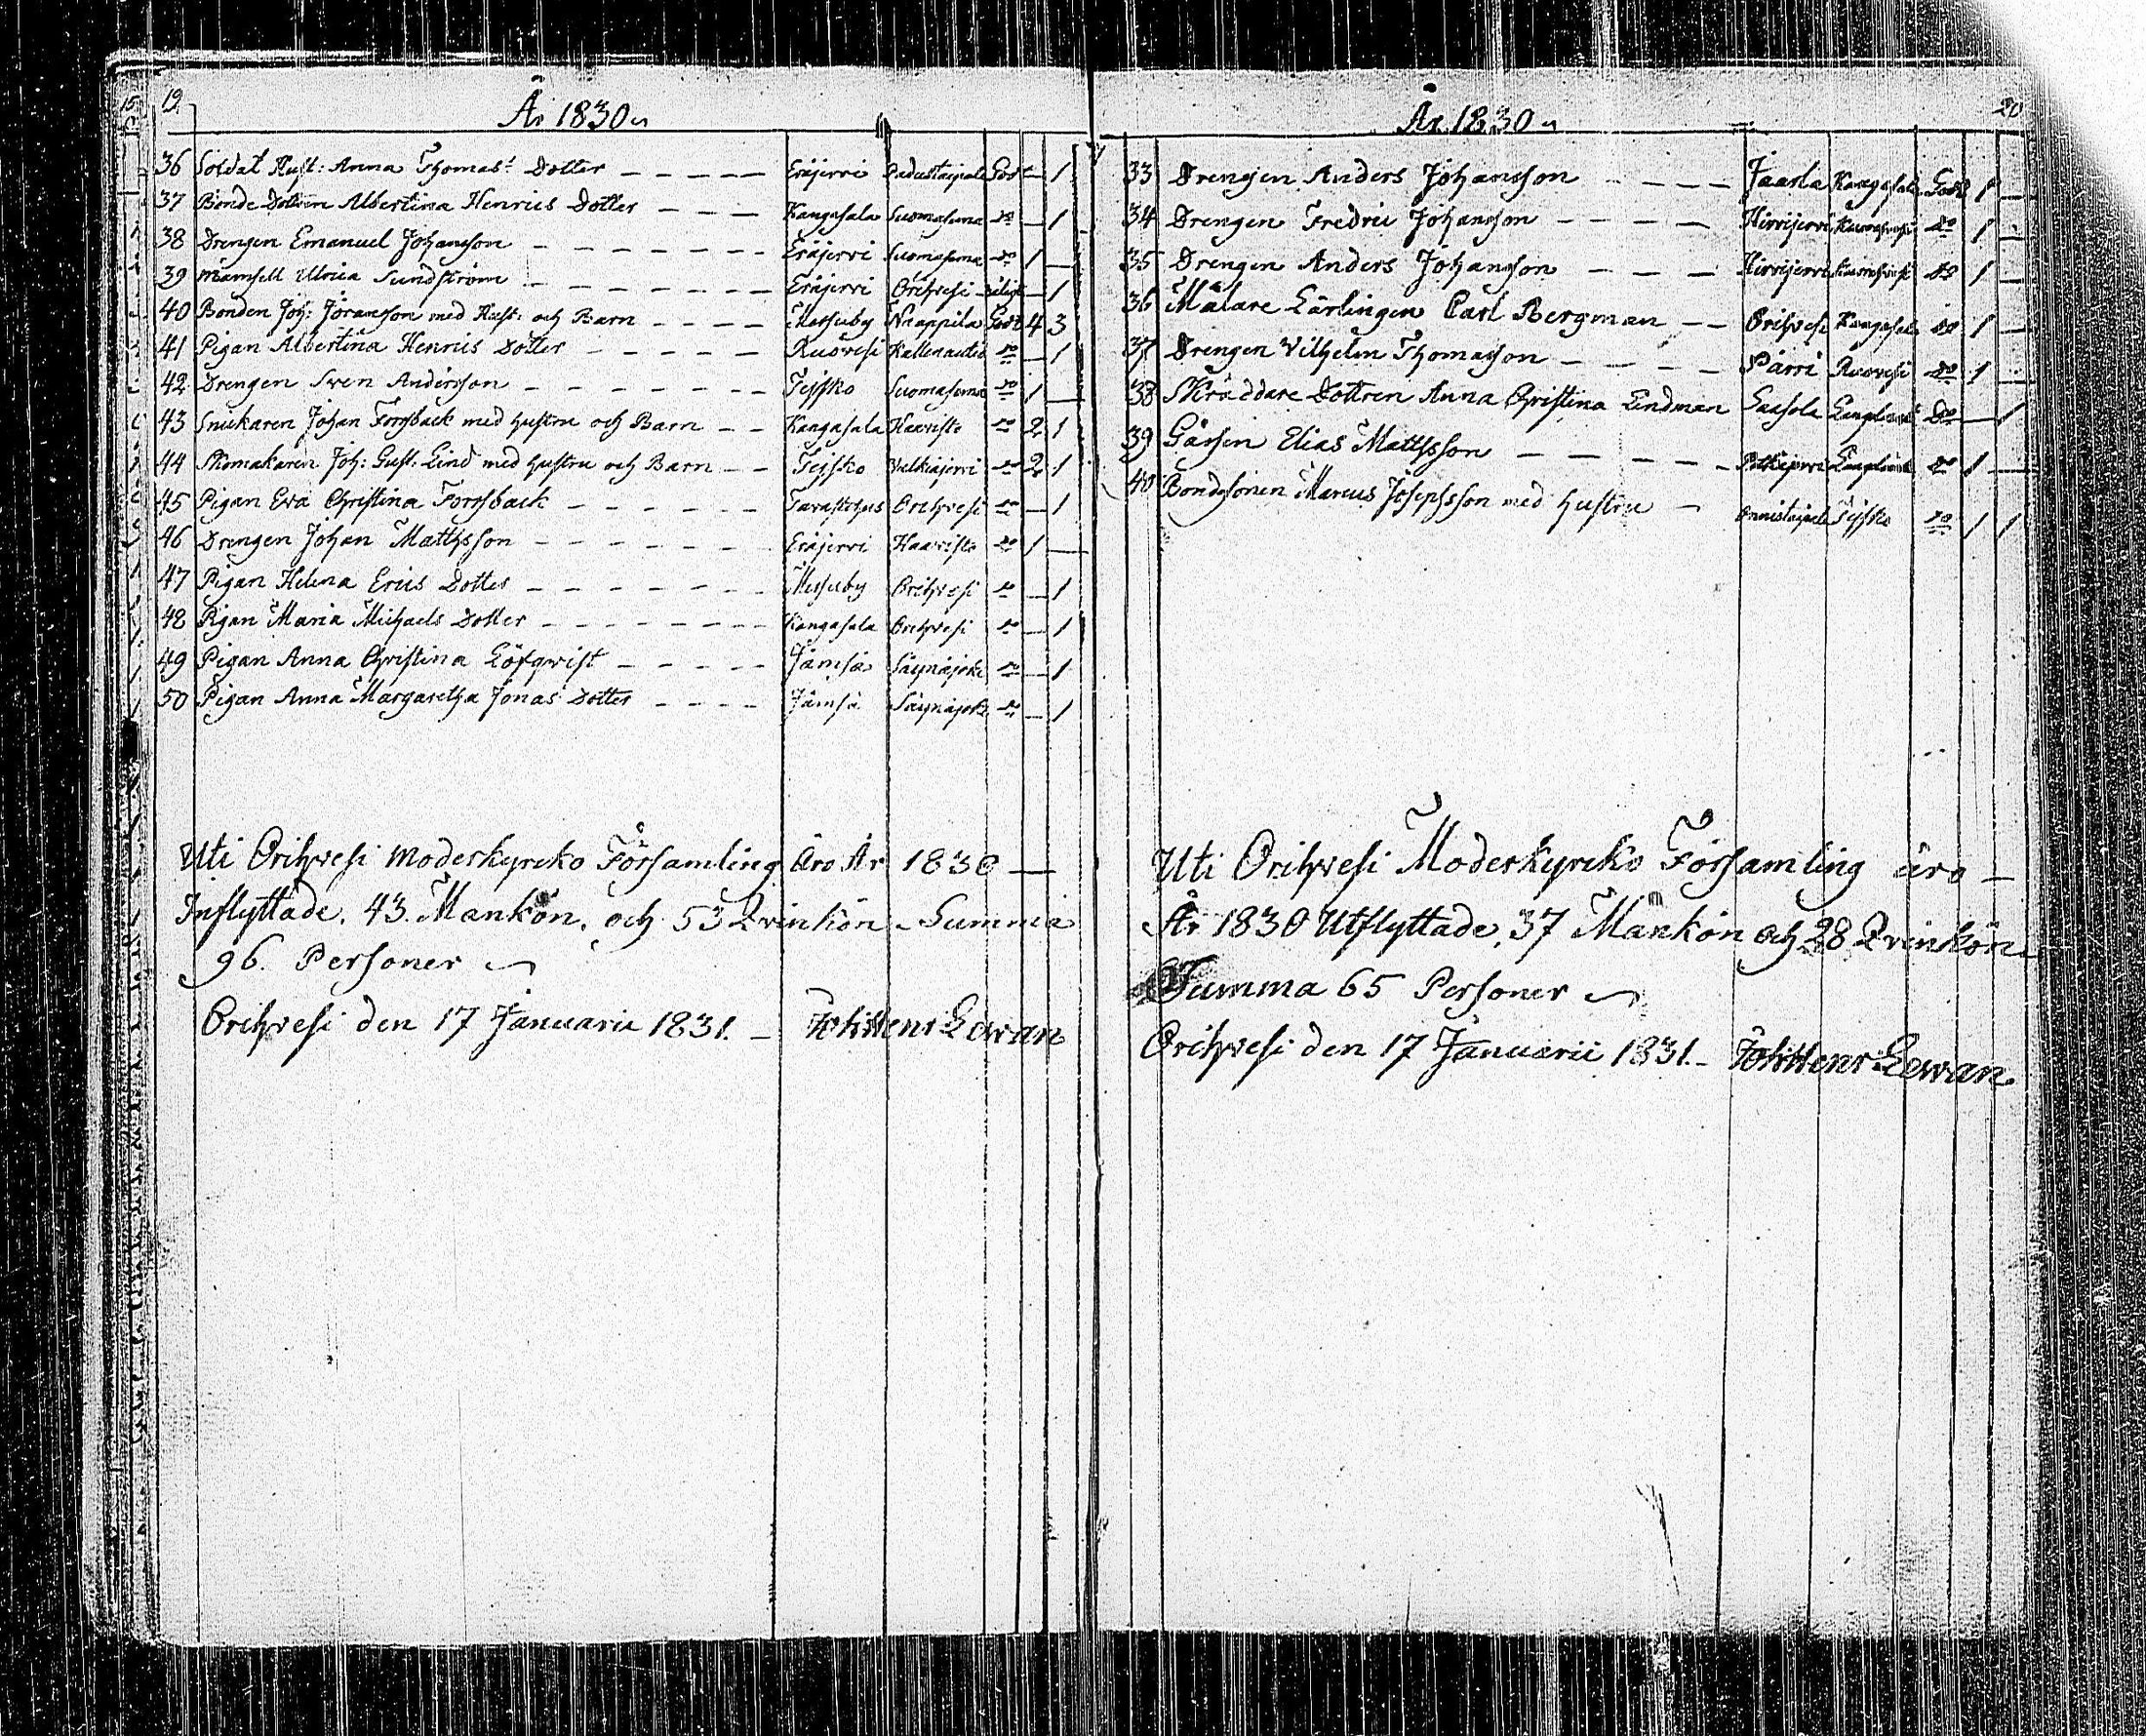 19.
År 1830
36 Soldat Hust: Anna Thomas: Dotter Eräjervi Padustaipale Godt — 1
37 Bonde Dottren Albertina Henrics Dotter Kangasala Suomasema do — 1
38 Drengen Emanuel Johansson Eräjervi Suomasema do 1 —
39 Mamsell Ulrica Sundström Eräjervi Orihvesi — 1
40 Bonden Joh: Jöransson med Hust: och Barn Messuby Naappila Godt 4 3
41 Pigan Albertina Henrics Dotter Ruovesi Kallenautio do — 1
42 Drengen Sven Andersson Tejsko Suomasema do 1 —
43 Snickaren Johan Forsback med hustru och Barn Kangasala Haavisto do 2 1
44 Skomakaren Joh: Gust: Lind med hustru och Barn Tejsko Valkiajervi do 2 1
45 Pigan Eva Christina Forsback Tavastehus Orihvesi do — 1
46 Drengen Johan Mattsson Eräjervi Haavisto do 1 —
47 Pigan Helena Erics Dotter Messuby Orihvesi do — 1
48 Pigan Maria Michaels Dotter Kangasala Orihvesi do — 1
49 Pigan Anna Christina Löfqvist Jämsä Säynäjoki do — 1
50 Pigan Anna Margaretha Jonas Dotter Jämsä Säynäjoki do — 1
Uti Orihvesi Moderkyrcko Församling äro År 1830 —
Inflyttade. 43. Mankön. och 53 Qvinkön — Summa
96. Personer
Orihvesi den 17 Januarii 1831. — Lewan
20
År 1830
33 Drengen Anders Johansson Jaarla Kangasala Godt 1 —
34 Drengen Fredric Johansson Hirvijervi Kuorehvesi do 1 —
35 Drengen Anders Johansson Hirvijervi Kuorehvesi do 1 —
36 Målare Lärlingen Carl Bergman Orihvesi Kangasala do 1 —
37 Drengen Vilhelm Thomasson Pärri Ruovesi do 1 —
38 Skräddare Dottren Anna Christina Lindman Saksala Längelmäki do — 1
39 Gossen Elias Mattsson Pitkäjervi Längelmäki do 1 —
40 Bondesonen Marcus Josephsson med hustru Onnistaipale Tejsko do 1 1
Uti Orihvesi Moderkyrcko Församling äro —
År 1830 Utflyttade, 37 Mankön och 28 Qvinkön
Summa 65 Personer
Orihvesi den 17 Januarii 1831. — Lewan